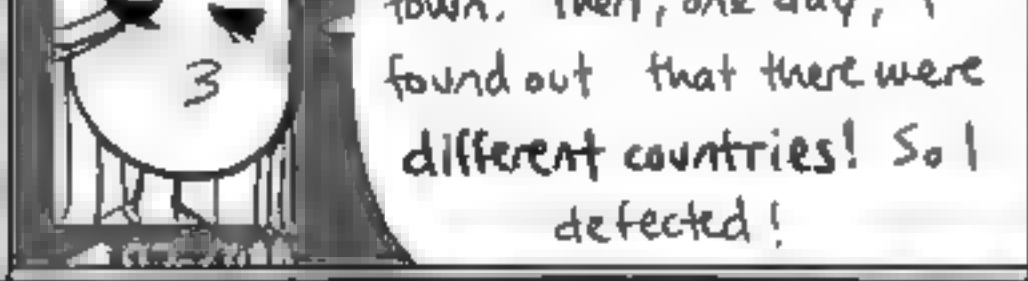 town. Then, one day, I
found out that there were
different countries! So I
defected!